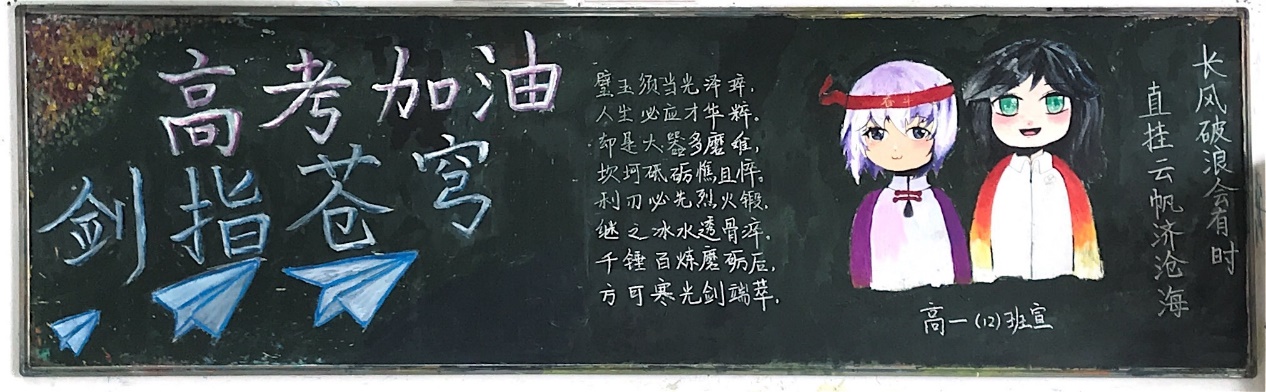 高考加油
剑指苍穹
璧玉须当光泽琗，
人生必应才华粹。
却是大器多磨难，
坎坷砥砺憔且悴。
利刃必先烈火锻，
继之冰水透骨淬。
千锤百炼磨砺后，
方可寒光剑端萃。
奋斗
高一(12)班宣
长风破浪会有时
直挂云帆济沧海